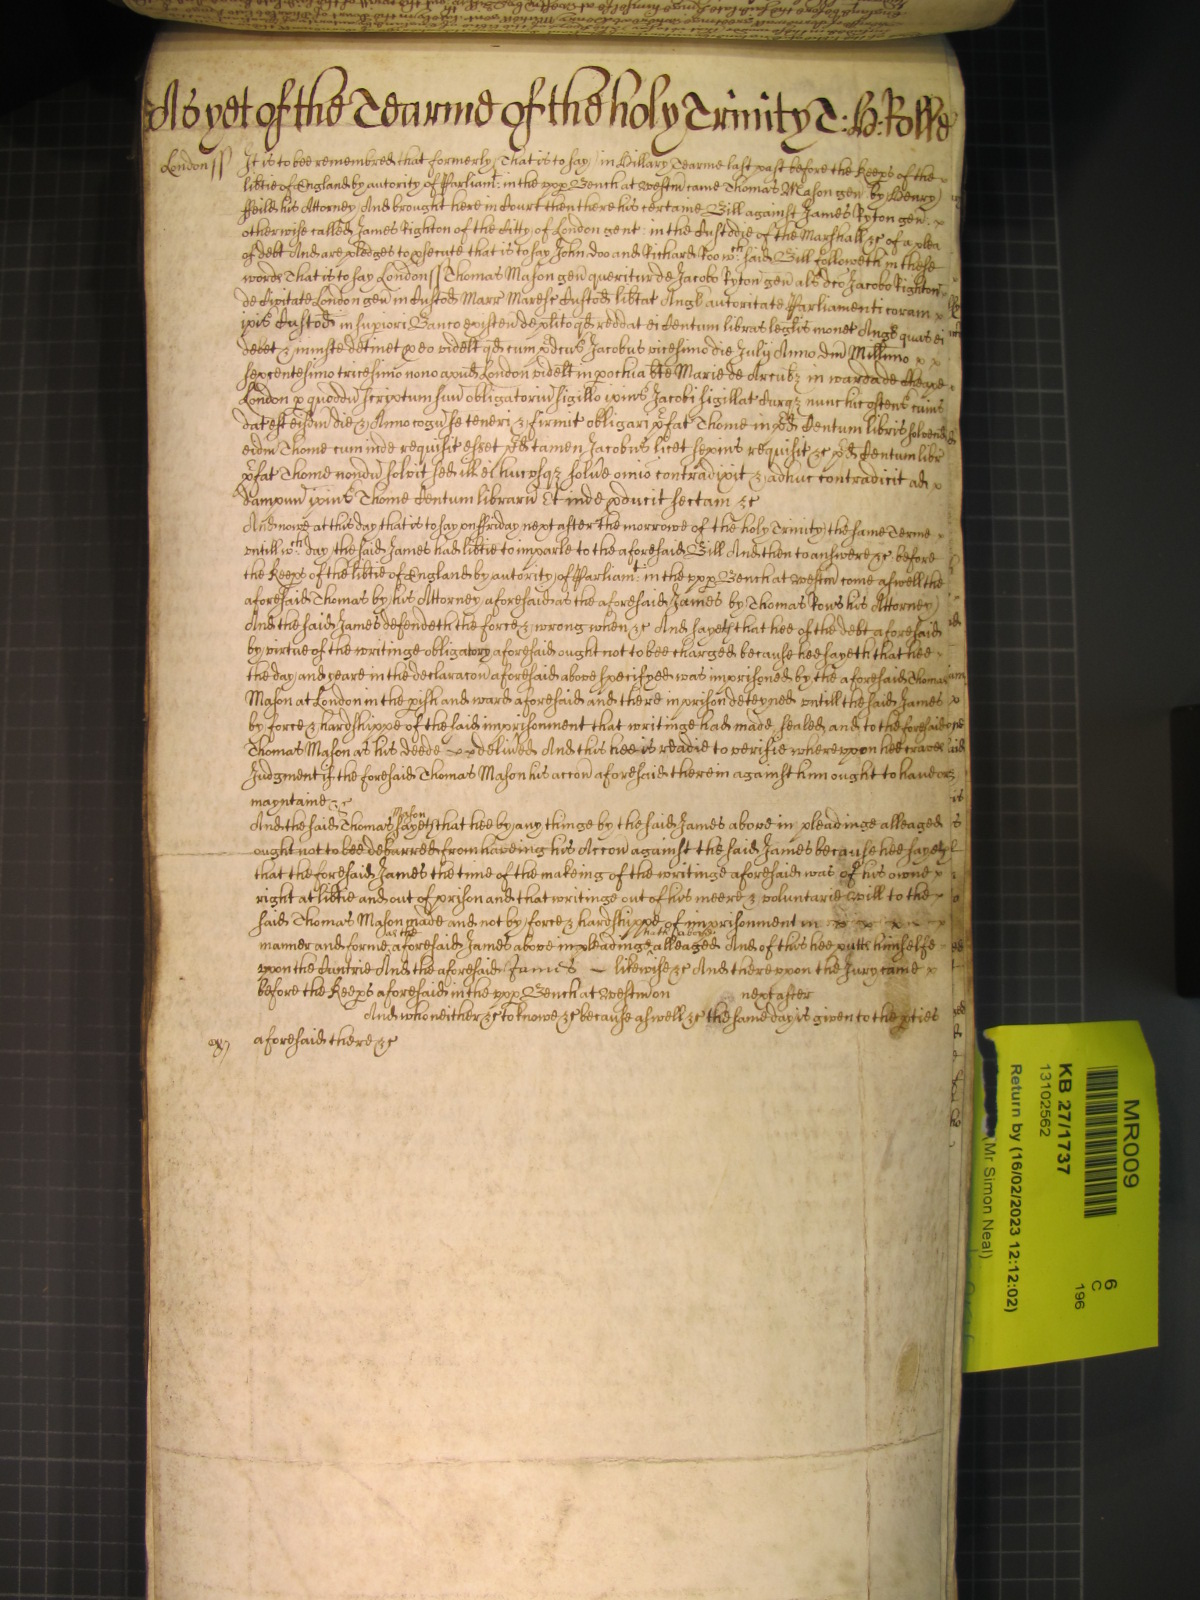 As yet of the Tearme of the holy Trinity T: H: Rolfe
London ss It is to bee remembred that formerly That is to say in Hillary Tearme last past before the Keeps of the
libtie of England by autority of Parliamt: in the vpp Bench at Westm came Thomas Mason gen by Henry
ffeild his Attorney And brought here in Court then there his certaine Bill against James Ryton gen:
otherwise called James Righton of the Citty of London gent: in the Custodie of the Marshall &c of a plea
of debt And are pledges to psecute that is to say John Doo and Richard Roo wch said Bill followeth in these
words That is to say London ss Thomas Mason gen queritur de Jacobo Ryton gen als dco Jacobo Righton
de Civitate London gen in Custod Marr Maresc Custod libtat Angl autoritate Parliamenti coram
ipis Custod in supiori Banco existen de plito qd reddat ei Centum libras leglis monet Angl quas ei
debet & iniuste detinet p eo videlt qd cum pdcus Jacobus vicesimo die Julij Anno dni Millimo
sexcentesimo tricesimo nono apud London videlt in pochia bte Marie de Arcubz in warda de Cheape
London p quoddu scriptum suu obligatoriu sigillo ipius Jacobi sigillat Curqz nunc hic ostens cuius
dat est eisdm die & Anno cogn se teneri & firmit obligari pfat Thome in pd Centum libris solvend
eidm Thome cum inde requisit esset pd tamen Jacobus licet sepius requisit &c pd Centum libr
pfat Thome nondu solvit sed ill ei huc vsqz solue omio contradixit & adhuc contradicit ad
dampnu ipius Thome Centum libraru Et inde pducit sectam &c
And nowe at this day that is to say on Friday next after the morrowe of the holy Trinity the same Terme
vntill wch day the said James had libtie to imparle to the aforesaid Bill And then to answere &c before
the Keeps of the libtie of England by autority of Parliamt: in the vpp Bench at Westm come aswell the
aforesaid Thomas by his Attorney aforesaid as the aforesaid James by Thomas Rows his Attorney
And the said James defendeth the force & wrong when &c And sayeth that hee of the debt aforesaid
by virtue of the writinge obligatory aforesaid ought not to bee charged because hee sayeth that hee
the day and yeare in the declaracon aforesaid above specifyed was imprisoned by the aforesaid Thomas
Mason at London in the pish and ward aforesaid and there in prison deteyned vntill the said James
by force & hardshippe of the said imprisonment that writinge had made sealed and to the foresaid
Thomas Mason as his deede delived And this hee is readie to verifie wherevpon hee craves
Judgment if the foresaid Thomas Mason his accon aforesaid therein against him ought to have or
mayntaine &c
And the said Thomas Mason sayeth that hee by any thinge by the said James above in pleadinge alleaged
ought not to bee debarred from haveing his Accon against the said James because hee sayeth
that the foresaid James the time of the makeing of the writinge aforesaid was of his owne
right at libtie and out of prison and that writinge out of his meere & voluntarie will to the
said Thomas Mason made and not by force & hardshippe of imprisonment in
manner and forme as the aforesaid James above in pleadinge hath above alleaged And of this hee putts himselfe
vpon the Cuntrie And the aforesaid James likewise &c And there vpon the Jury came
before the Keeps aforesaid in the vpp Bench at Westm on next after
And who neither &c to knowe &c because aswell &c the same day is given to the pties
aforesaid there &c
MR009
KB 27/1737
13102562
Return by (16/02/2023 12:12:02)
(Mr Simon Neal)
6
C
196